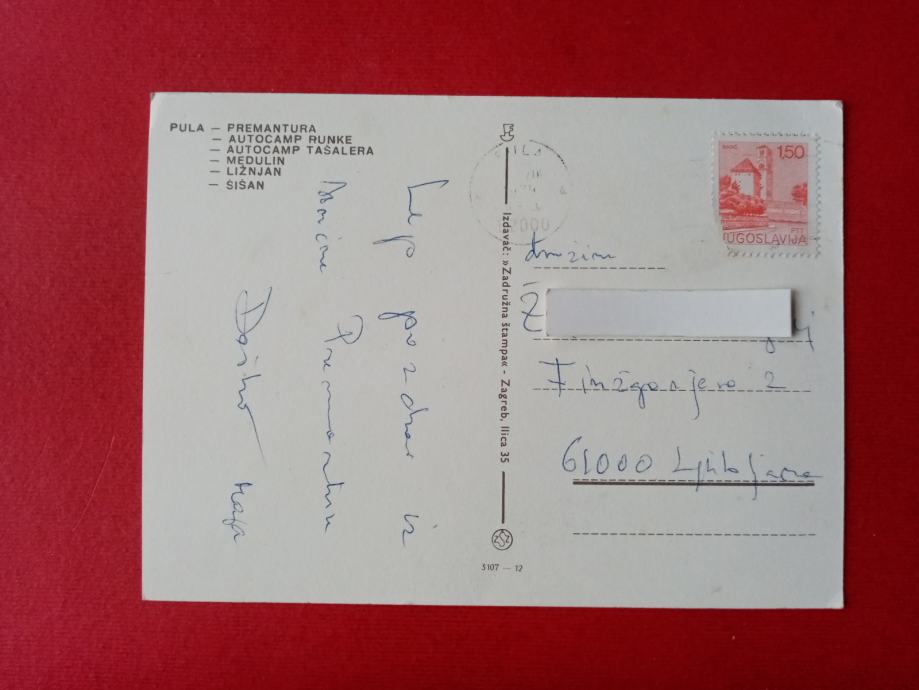 PULA — PREMANTURA
— AUTOCAMP RUNKE
— AUTOCAMP TAŠALERA
— MEDULIN
— LIŽNJAN
— ŠIŠAN
Lep pozdrav iz
Premanture
Izdavač: »Zadružna štampa« - Zagreb, Ilica 35
5107 — 12
1,50
PTT
JUGOSLAVIJA
družini
Ž
Finžgarjeva 2
61000 Ljubljana